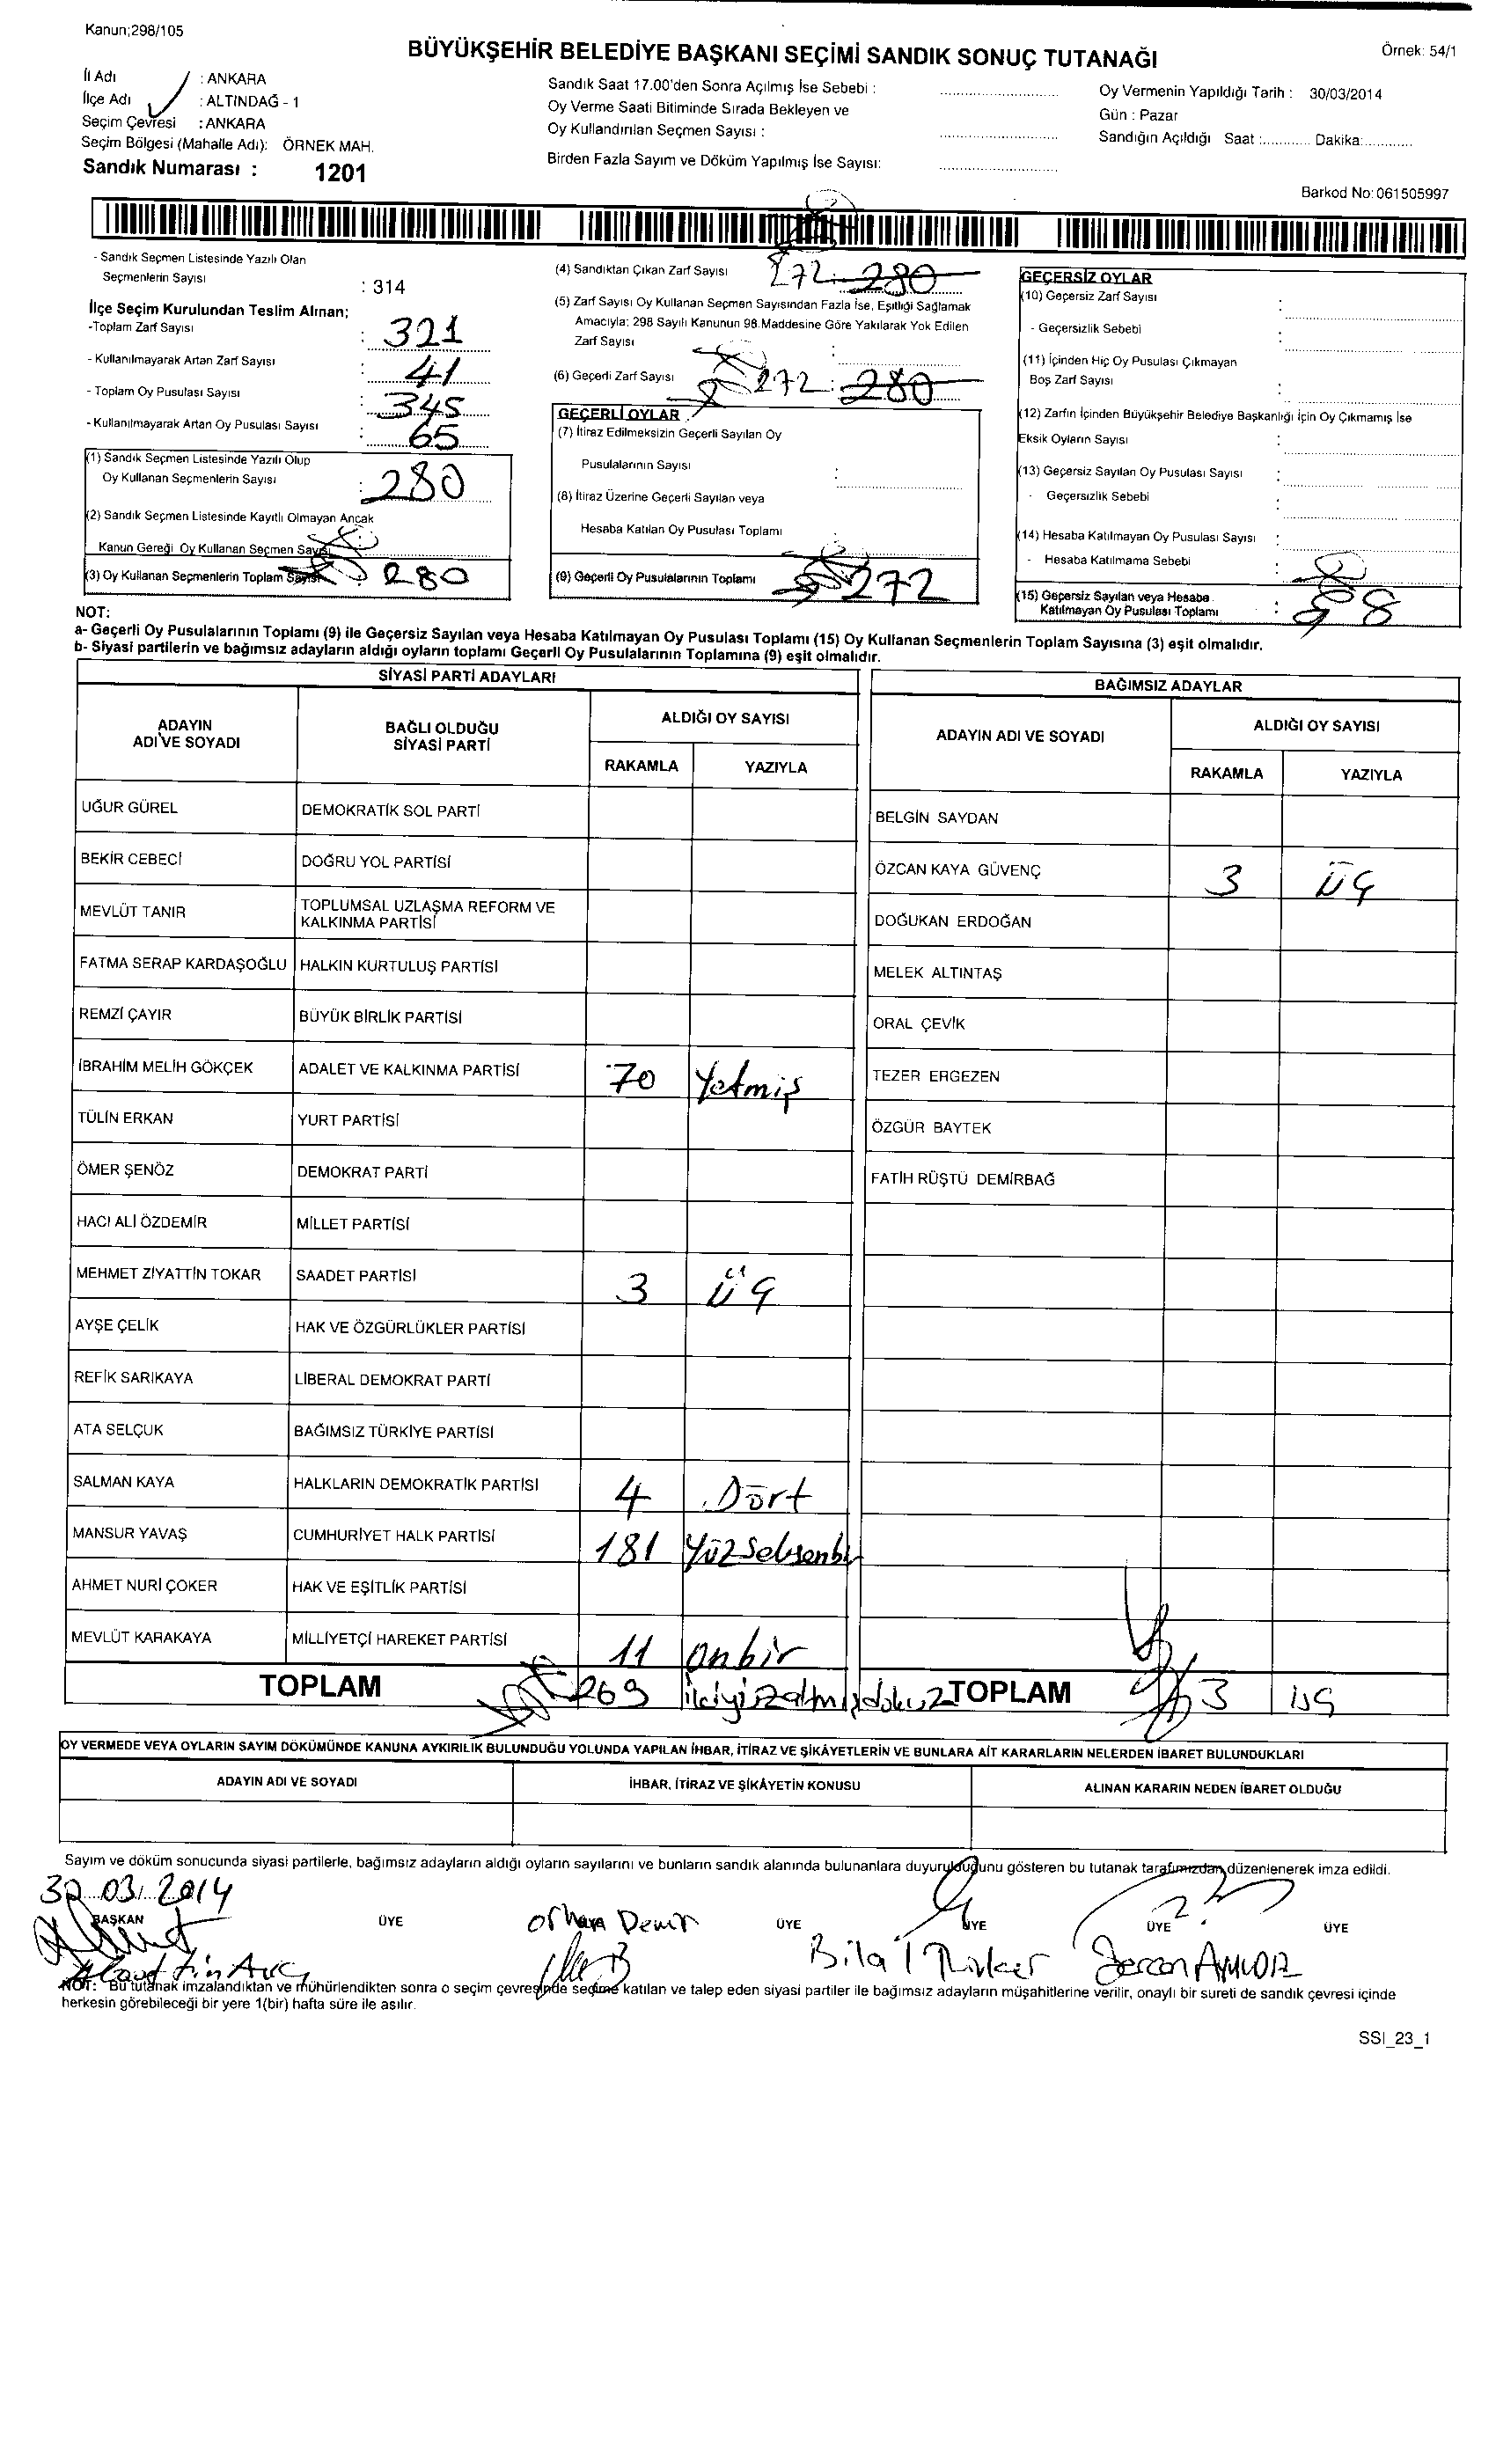 Kanun;298/105
BÜYÜKŞEHİR BELEDİYE BAŞKANI SEÇİMİ SANDIK SONUÇ TUTANAĞI
Örnek: 54/1
İl Adı : ANKARA
İlçe Adı : ALTINDAĞ - 1
Seçim Çevresi : ANKARA
Seçim Bölgesi (Mahalle Adı): ÖRNEK MAH.
Sandık Numarası : 1201
Sandık Saat 17.00'den Sonra Açılmış İse Sebebi :
Oy Verme Saati Bitiminde Sırada Bekleyen ve
Oy Kullandırılan Seçmen Sayısı :
Birden Fazla Sayım ve Döküm Yapılmış İse Sayısı:
Oy Vermenin Yapıldığı Tarih : 30/03/2014
Gün : Pazar
Sandığın Açıldığı Saat :............ Dakika:............
Barkod No:061505997
- Sandık Seçmen Listesinde Yazılı Olan
Seçmenlerin Sayısı : 314
İlçe Seçim Kurulundan Teslim Alınan;
-Toplam Zarf Sayısı : 321
- Kullanılmayarak Artan Zarf Sayısı : 41
- Toplam Oy Pusulası Sayısı : 345
- Kullanılmayarak Artan Oy Pusulası Sayısı : 65
(1) Sandık Seçmen Listesinde Yazılı Olup
Oy Kullanan Seçmenlerin Sayısı : 280
(2) Sandık Seçmen Listesinde Kayıtlı Olmayan Ancak
Kanun Gereği Oy Kullanan Seçmen Sayısı
(3) Oy Kullanan Seçmenlerin Toplam Sayısı 280
(4) Sandıktan Çıkan Zarf Sayısı 272 : 280
(5) Zarf Sayısı Oy Kullanan Seçmen Sayısından Fazla İse, Eşitliği Sağlamak
Amacıyla: 298 Sayılı Kanunun 98.Maddesine Göre Yakılarak Yok Edilen
Zarf Sayısı :
(6) Geçerli Zarf Sayısı 272 : 280
GEÇERLİ OYLAR
(7) İtiraz Edilmeksizin Geçerli Sayılan Oy
Pusulalarının Sayısı :
(8) İtiraz Üzerine Geçerli Sayılan veya
Hesaba Katılan Oy Pusulası Toplamı
(9) Geçerli Oy Pusulalarının Toplamı 272
GEÇERSİZ OYLAR
(10) Geçersiz Zarf Sayısı :
- Geçersizlik Sebebi :
(11) İçinden Hiç Oy Pusulası Çıkmayan
Boş Zarf Sayısı :
(12) Zarfın İçinden Büyükşehir Belediye Başkanlığı İçin Oy Çıkmamış İse
Eksik Oyların Sayısı :
(13) Geçersiz Sayılan Oy Pusulası Sayısı :
- Geçersizlik Sebebi :
(14) Hesaba Katılmayan Oy Pusulası Sayısı :
- Hesaba Katılmama Sebebi :
(15) Geçersiz Sayılan veya Hesaba
Katılmayan Oy Pusulası Toplamı : 8
NOT:
a- Geçerli Oy Pusulalarının Toplamı (9) ile Geçersiz Sayılan veya Hesaba Katılmayan Oy Pusulası Toplamı (15) Oy Kullanan Seçmenlerin Toplam Sayısına (3) eşit olmalıdır.
b- Siyasi partilerin ve bağımsız adayların aldığı oyların toplamı Geçerli Oy Pusulalarının Toplamına (9) eşit olmalıdır.
SİYASİ PARTİ ADAYLARI
ADAYIN ADI VE SOYADI
BAĞLI OLDUĞU SİYASİ PARTİ
ALDIĞI OY SAYISI
RAKAMLA YAZIYLA
UĞUR GÜREL DEMOKRATİK SOL PARTİ
BEKİR CEBECİ DOĞRU YOL PARTİSİ
MEVLÜT TANIR TOPLUMSAL UZLAŞMA REFORM VE
KALKINMA PARTİSİ
FATMA SERAP KARDAŞOĞLU HALKIN KURTULUŞ PARTİSİ
REMZİ ÇAYIR BÜYÜK BİRLİK PARTİSİ
İBRAHİM MELİH GÖKÇEK ADALET VE KALKINMA PARTİSİ 70 Yetmiş
TÜLİN ERKAN YURT PARTİSİ
ÖMER ŞENÖZ DEMOKRAT PARTİ
HACI ALİ ÖZDEMİR MİLLET PARTİSİ
MEHMET ZİYATTİN TOKAR SAADET PARTİSİ 3 üç
AYŞE ÇELİK HAK VE ÖZGÜRLÜKLER PARTİSİ
REFİK SARIKAYA LİBERAL DEMOKRAT PARTİ
ATA SELÇUK BAĞIMSIZ TÜRKİYE PARTİSİ
SALMAN KAYA HALKLARIN DEMOKRATİK PARTİSİ 4 Dört
MANSUR YAVAŞ CUMHURİYET HALK PARTİSİ 181 Yüzseksenbi
AHMET NURİ ÇOKER HAK VE EŞİTLİK PARTİSİ
MEVLÜT KARAKAYA MİLLİYETÇİ HAREKET PARTİSİ 11 onbir
TOPLAM 269 ikiyüzaltmışdokuz
BAĞIMSIZ ADAYLAR
ADAYIN ADI VE SOYADI
ALDIĞI OY SAYISI
RAKAMLA YAZIYLA
BELGİN SAYDAN
ÖZCAN KAYA GÜVENÇ 3 üç
DOĞUKAN ERDOĞAN
MELEK ALTINTAŞ
ORAL ÇEVİK
TEZER ERGEZEN
ÖZGÜR BAYTEK
FATİH RÜŞTÜ DEMİRBAĞ
TOPLAM 3 üç
OY VERMEDE VEYA OYLARIN SAYIM DÖKÜMÜNDE KANUNA AYKIRILIK BULUNDUĞU YOLUNDA YAPILAN İHBAR, İTİRAZ VE ŞİKÂYETLERİN VE BUNLARA AİT KARARLARIN NELERDEN İBARET BULUNDUKLARI
ADAYIN ADI VE SOYADI İHBAR, İTİRAZ VE ŞİKÂYETİN KONUSU ALINAN KARARIN NEDEN İBARET OLDUĞU
Sayım ve döküm sonucunda siyasi partilerle, bağımsız adayların aldığı oyların sayılarını ve bunların sandık alanında bulunanlara duyurulduğunu gösteren bu tutanak tarafımızdan düzenlenerek imza edildi.
30.03.2014
BAŞKAN ÜYE ÜYE ÜYE ÜYE ÜYE
Orhan Demir
Bilal
NOT: Bu tutanak imzalandıktan ve mühürlendikten sonra o seçim çevresinde seçime katılan ve talep eden siyasi partiler ile bağımsız adayların müşahitlerine verilir, onaylı bir sureti de sandık çevresi içinde
herkesin görebileceği bir yere 1(bir) hafta süre ile asılır.
SSI_23_1